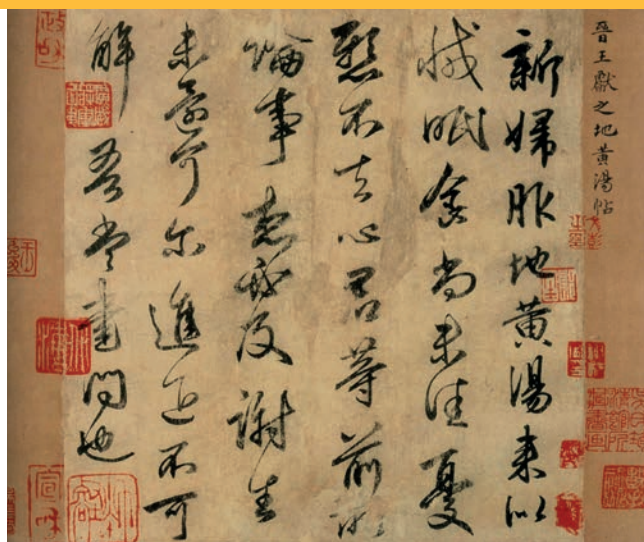 晉王獻之地黃湯帖
新婦服地黄湯来似
減眠食尚未佳憂
懸不去心君等前所
論事想必及謝生
未還可尔進退不可
解吾當書問也
政和
宣和